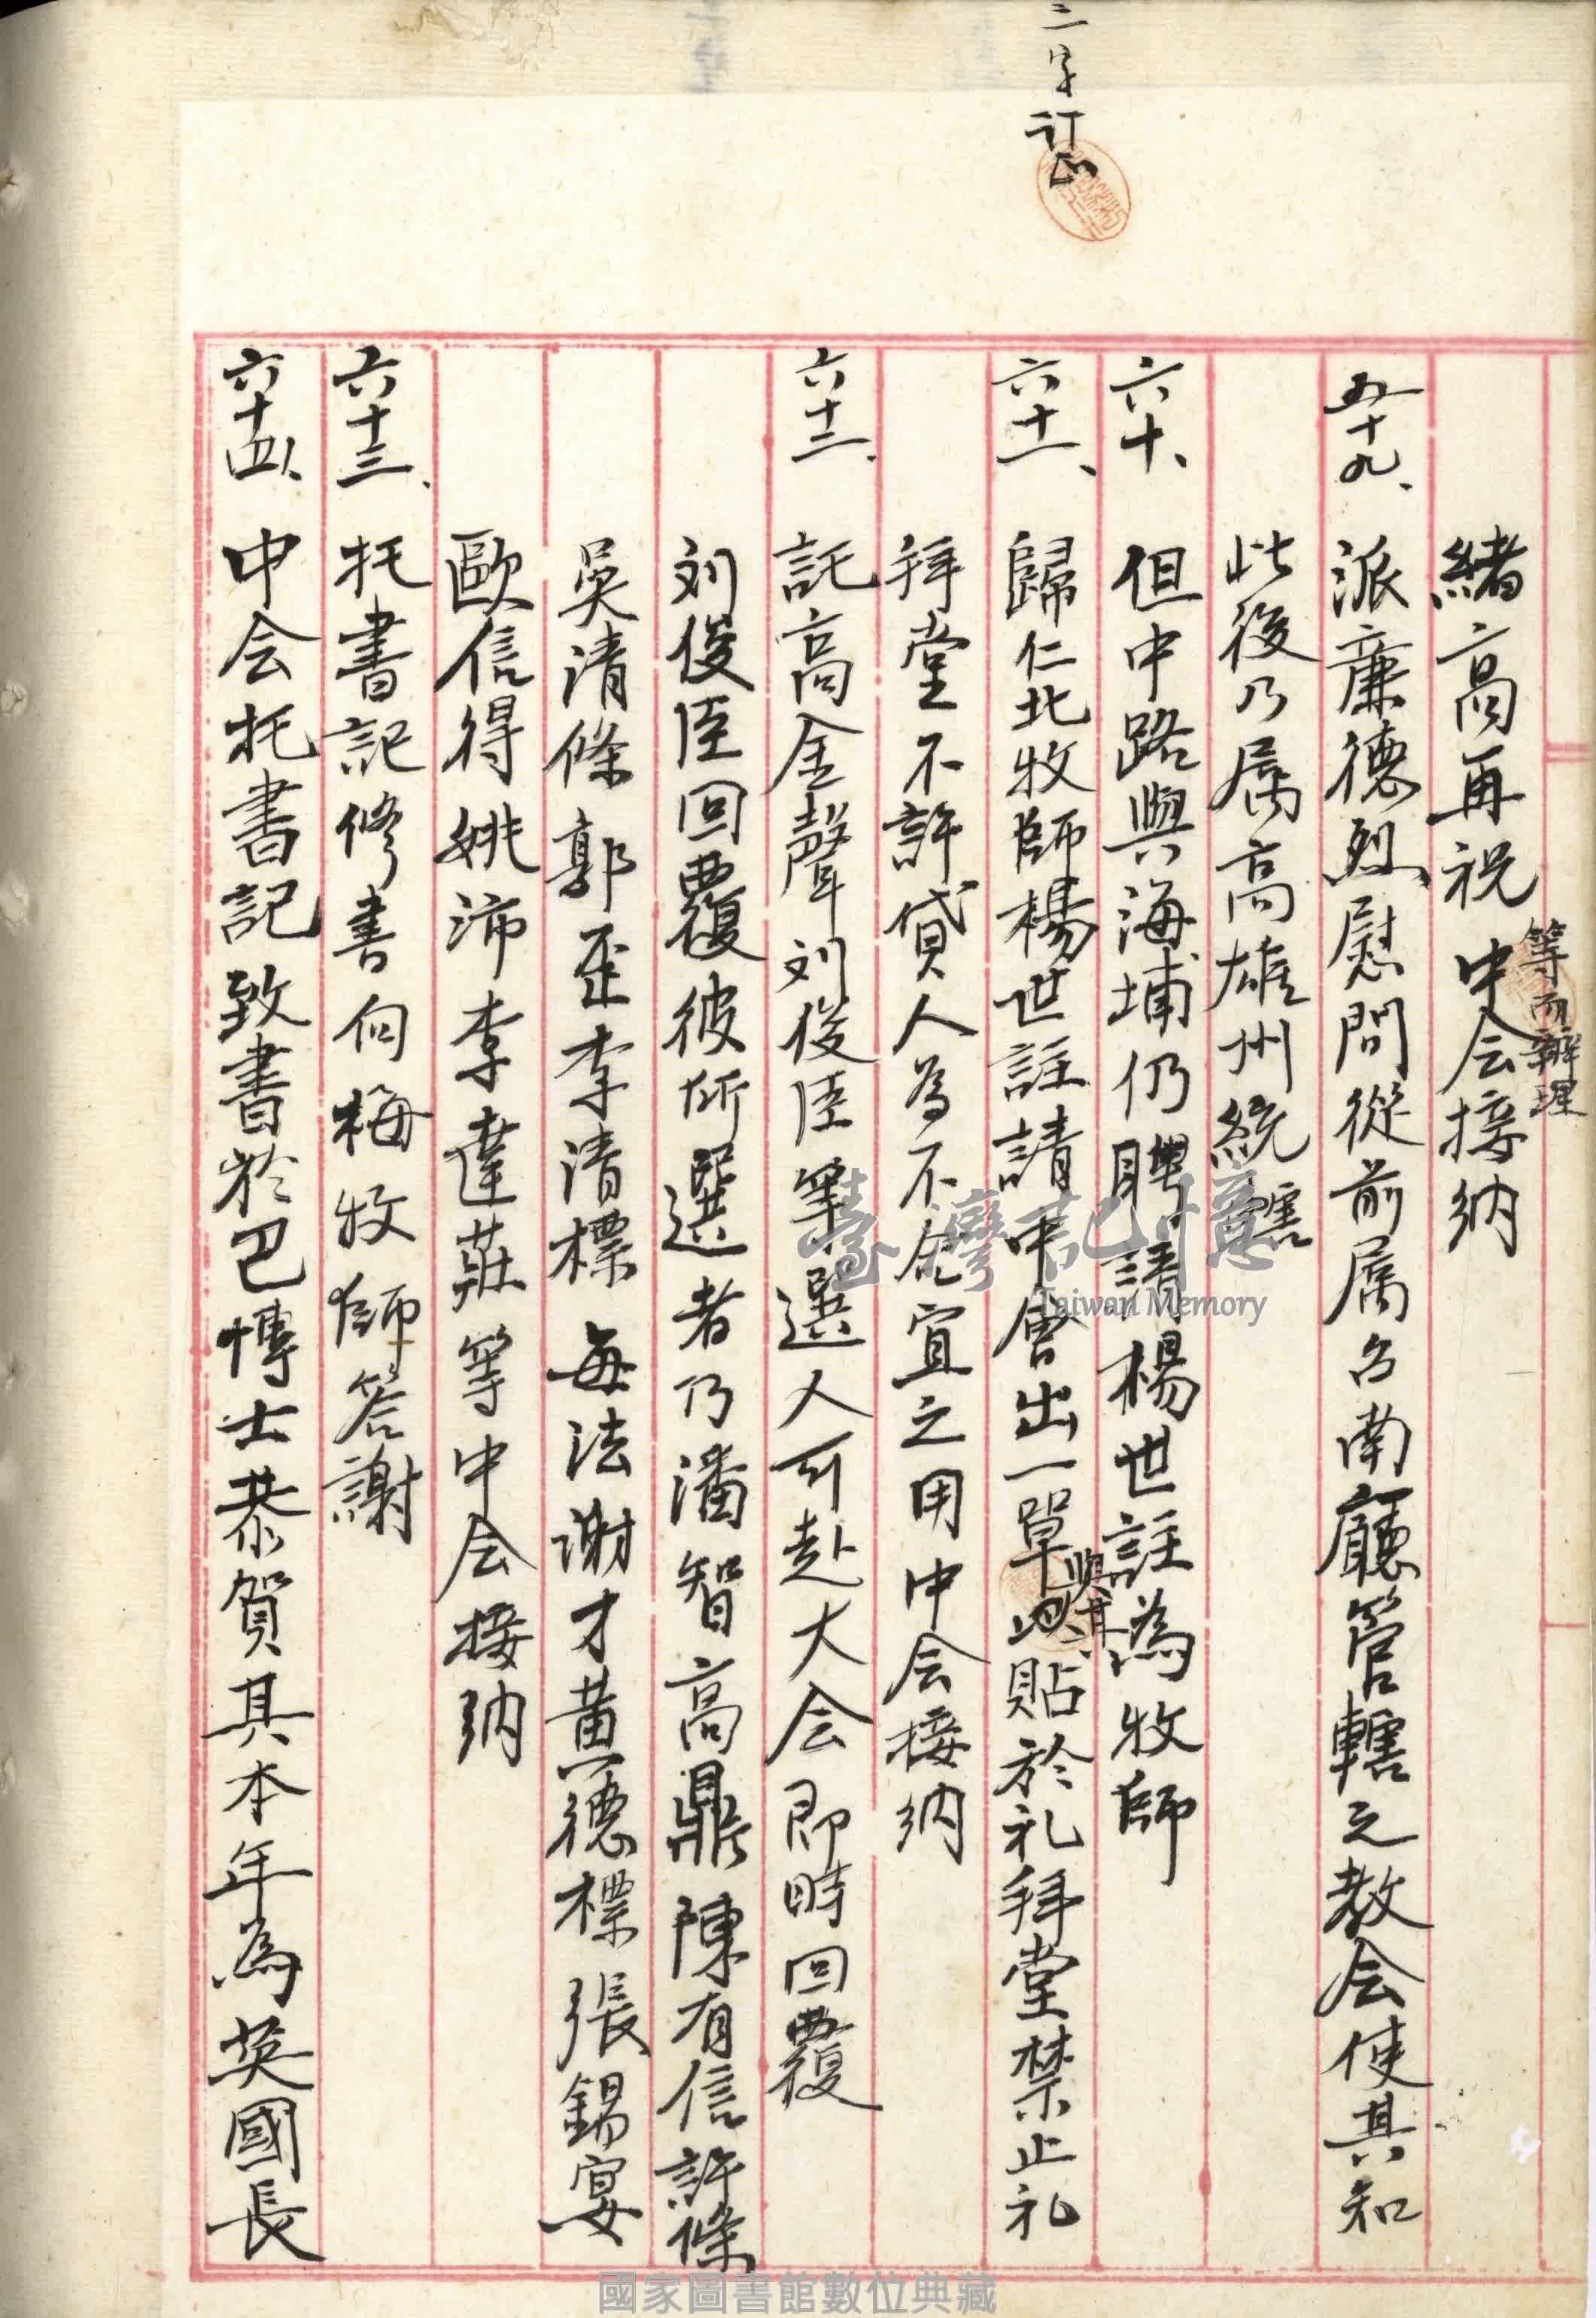 二字訂正
緒高再祝 中会接納
等而辦理
五十九、派廉德烈慰問從前属台南廳管轄之教会使其知
此後乃属高雄州統轄
六十、但中路與海埔仍聘請楊世註為牧師
六十一、歸仁北牧師楊世註請中會出一單
與其
貼於礼拜堂禁止礼
拜堂不許貸人為不合宜之用中会接納
六十二、託高金聲刘俊臣筆選人可赴大会即時回覆
刘俊臣回覆彼所選者乃潘智高鼎陳有信許條
吳清條郭歪李清標每法謝才黃德標張錫宴
歐信得姚沛李達莊等中会接納
六十三、托書記修書向梅牧師答謝
六十四、中会托書記致書於巴博士恭賀其本年為英國長
臺灣記憶
Taiwan Memory
國家圖書館數位典藏